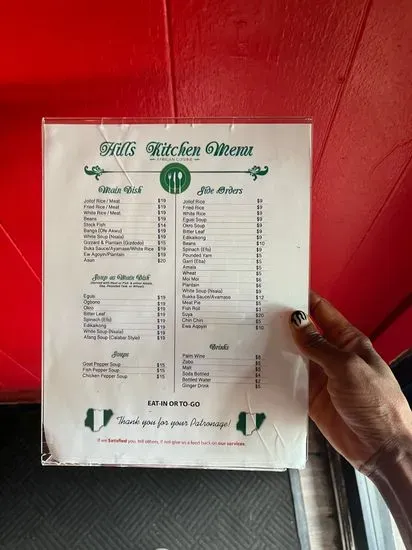 Hills Kitchen Menu
AFRICAN CUISINE
Main Dish
Jollof Rice / Meat $19
Fried Rice / Meat $19
White Rice / Meat $19
Beans $19
Stock Fish $14
Banga (Ofe Akwu) $19
White Soup (Nsala) $19
Gizzard & Plantain (Gizdodo) $15
Buka Sauce/Ayamase/White Rice $19
Ewa Agoyin/Plantain $19
Asun $20
Soup as Main Dish
(Served with Meat or Fish & either Amala,
Gari, Pounded Yam, or Wheat)
Egusi $19
Ogbono $19
Okro $19
Bitter Leaf $19
Spinach (Efo) $19
Edikaikong $19
White Soup (Nsala) $19
Afang Soup (Calabar Style) $19
Soups
Goat Pepper Soup $15
Fish Pepper Soup $15
Chicken Pepper Soup $15
Side Orders
Jollof Rice $9
Fried Rice $9
White Rice $9
Egusi Soup $9
Okro Soup $9
Bitter Leaf $9
Edikaikong $9
Beans $10
Spinach (Efo) $9
Pounded Yam $5
Garri (Eba) $5
Amala $5
Wheat $5
Moi Moi $6
Plantain $6
White Soup (Nsala) $9
Bukka Sauce/Ayamase $12
Meat Pie $5
Fish Roll
Suya $20
Chin Chin $5
Ewa Agoyin $10
Drinks
Palm Wine $8
Zobo $5
Malt
Soda Bottled $4
Bottled Water $2
Ginger Drink $5
EAT-IN OR TO-GO
Thank you for your Patronage!
If we Satisfied you, tell others, if not give us a feed back on our services.